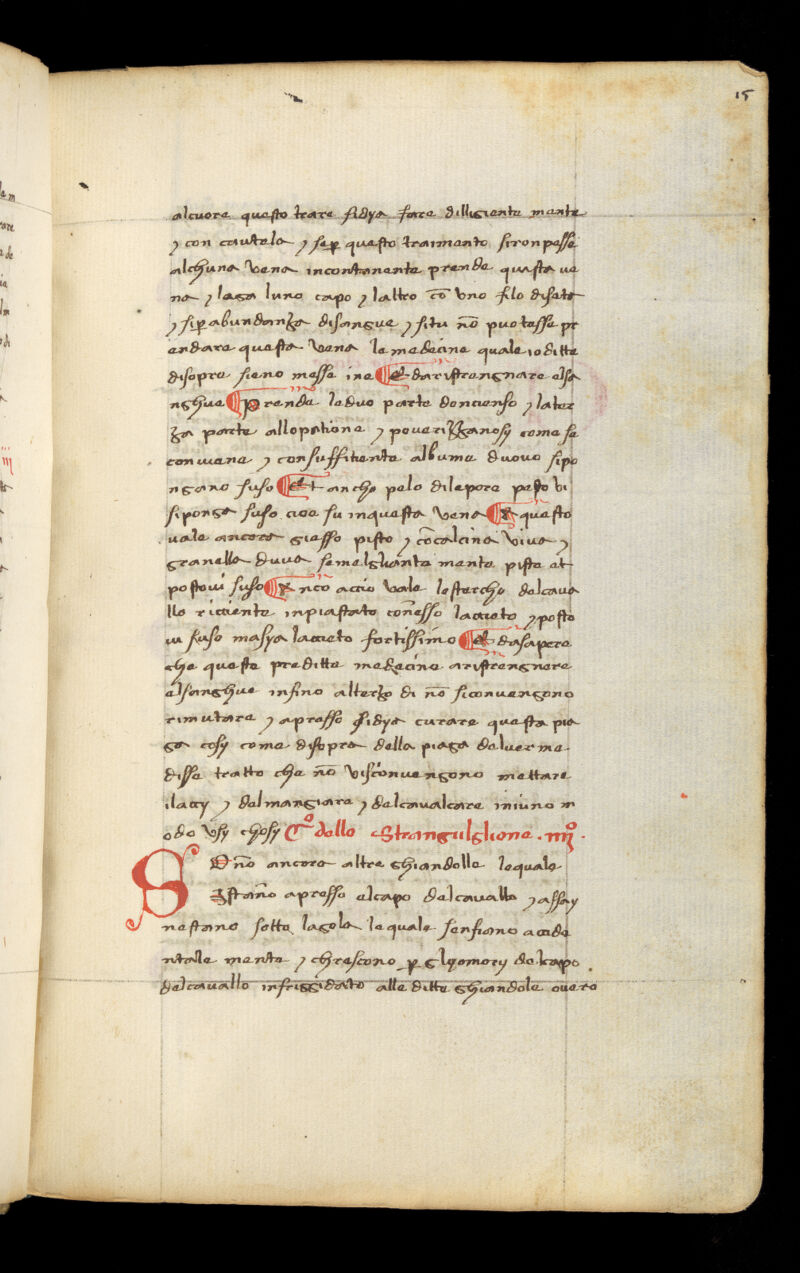 15
alcuore questo trare sidya fare dilligiente mente
⁊ con cautela ⁊ seꝑ questo traimento sironpesse
alchuna vena incontanente prende quista ve
na ⁊ laga luno capo ⁊ laltro cō vno filo diseta
⁊ siꝑ abundanza disangue ⁊ situ nō puotesse pr
endare questa vena le medecine quale io ditte
disopra sieno messe ine ¶ E daristrengnare elsa
nghue ¶ Prende leduo parte doncienso ⁊ later
za parte allopatione ⁊ poverizzanosy come se
conviene ⁊ consuffitiente albume dvovo sipo
ngano suso ¶ Et anche pelo dilepore pesto vi
siponga suso cioe su inquesta vena ¶ A questo
vale ancora giesso pisto ⁊ cōcalcina viva ⁊
granella dvva semelghante mente piste et
postovi suso ¶ Anco accio vale lostercho delcava
llo ricciente inpiastato conesso lacieto ⁊ posto
vi suso masya lacieto fortissimo ¶ E dasapere
che queste preditte medecine aristrengnere
elsanghue infino alterzo di nō siconvengono
rimutare ⁊ apresso sidya curare questa pia
ga cosy come disopra della piaga delverme
disse tratto che nō visconvengono mettare
ilaccy ⁊ delmangiare ⁊ delcavalcare iniuno m
odo vsy chosy C° dello Strangulglione . iiii° .
SOnō ancora altre ghiandolle lequale
Istanō apresso elcapo delcavallo ⁊ assay
nestano sotto lagola lequale senfiano accide
ntale mente ⁊ chrescono ꝑ glyomory delcapo
delcavallo infriggidato alle ditte ghiandole overo